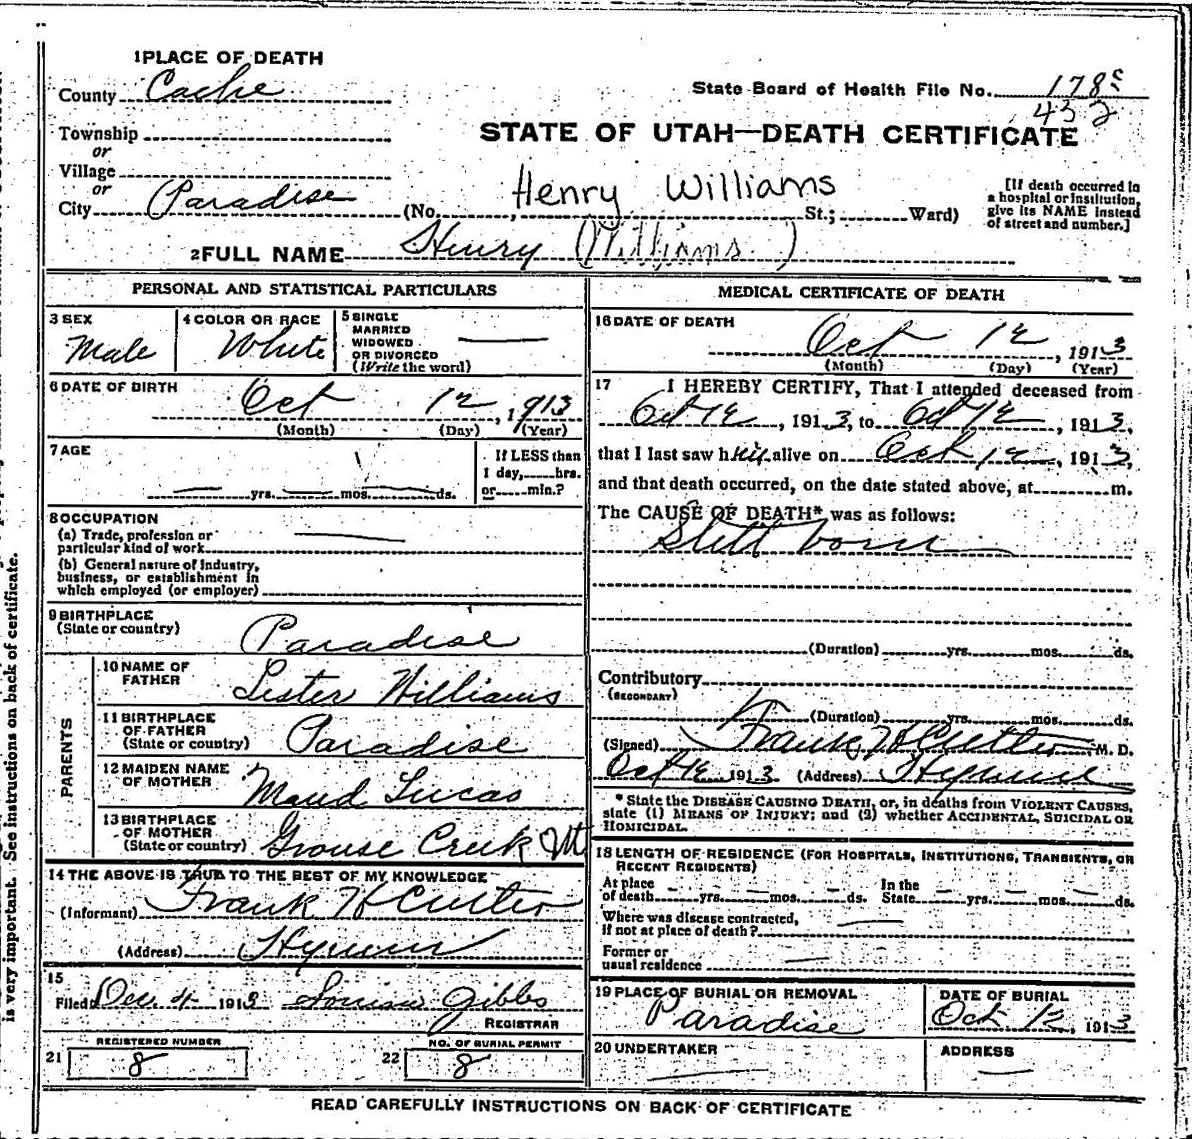 1 PLACE OF DEATH
County Cache
State Board of Health File No. 178
432
Township
or
STATE OF UTAH—DEATH CERTIFICATE
Village
or
Henry Williams
City Paradise (No. , St.; Ward)
[If death occurred in
a hospital or institution,
give its NAME instead
of street and number.]
2 FULL NAME Henry (Williams)
PERSONAL AND STATISTICAL PARTICULARS
3 SEX
Male
4 COLOR OR RACE
White
5 SINGLE
MARRIED
WIDOWED
OR DIVORCED
(Write the word)
6 DATE OF BIRTH
Oct 12, 1913
(Month) (Day) (Year)
7 AGE
yrs. mos. ds.
If LESS than
1 day, hrs.
or min.?
8 OCCUPATION
(a) Trade, profession or
particular kind of work
(b) General nature of industry,
business, or establishment in
which employed (or employer)
9 BIRTHPLACE
(State or country)
Paradise
PARENTS
10 NAME OF
FATHER
Lester Williams
11 BIRTHPLACE
OF FATHER
(State or country)
Paradise
12 MAIDEN NAME
OF MOTHER
Maud Lucas
13 BIRTHPLACE
OF MOTHER
(State or country)
Grouse Creek Ut
14 THE ABOVE IS TRUE TO THE BEST OF MY KNOWLEDGE
(Informant) Frank H Cutler
(Address) Hyrum
15
Filed Dec 4 1913 Louisa Gibbs
REGISTRAR
21
REGISTERED NUMBER
8
22
NO. OF BURIAL PERMIT
8
MEDICAL CERTIFICATE OF DEATH
16 DATE OF DEATH
Oct 12, 1913
(Month) (Day) (Year)
17 I HEREBY CERTIFY, That I attended deceased from
Oct 12, 1913, to Oct 12, 1913,
that I last saw h alive on Oct 12, 1913,
and that death occurred, on the date stated above, at m.
The CAUSE OF DEATH* was as follows:
Still born
(Duration) yrs. mos. ds.
Contributory
(SECONDARY)
(Duration) yrs. mos. ds.
(Signed) Frank H Cutler M. D.
Oct 12 1913 (Address) Hyrum
* State the DISEASE CAUSING DEATH, or, in deaths from VIOLENT CAUSES,
state (1) MEANS OF INJURY; and (2) whether ACCIDENTAL, SUICIDAL OR
HOMICIDAL.
18 LENGTH OF RESIDENCE (FOR HOSPITALS, INSTITUTIONS, TRANSIENTS, OR
RECENT RESIDENTS)
At place
of death yrs. mos. ds.
In the
State yrs. mos. ds.
Where was disease contracted,
if not at place of death?
Former or
usual residence
19 PLACE OF BURIAL OR REMOVAL
Paradise
DATE OF BURIAL
Oct 12, 1913
20 UNDERTAKER
ADDRESS
READ CAREFULLY INSTRUCTIONS ON BACK OF CERTIFICATE
is very important. See instructions on back of certificate.